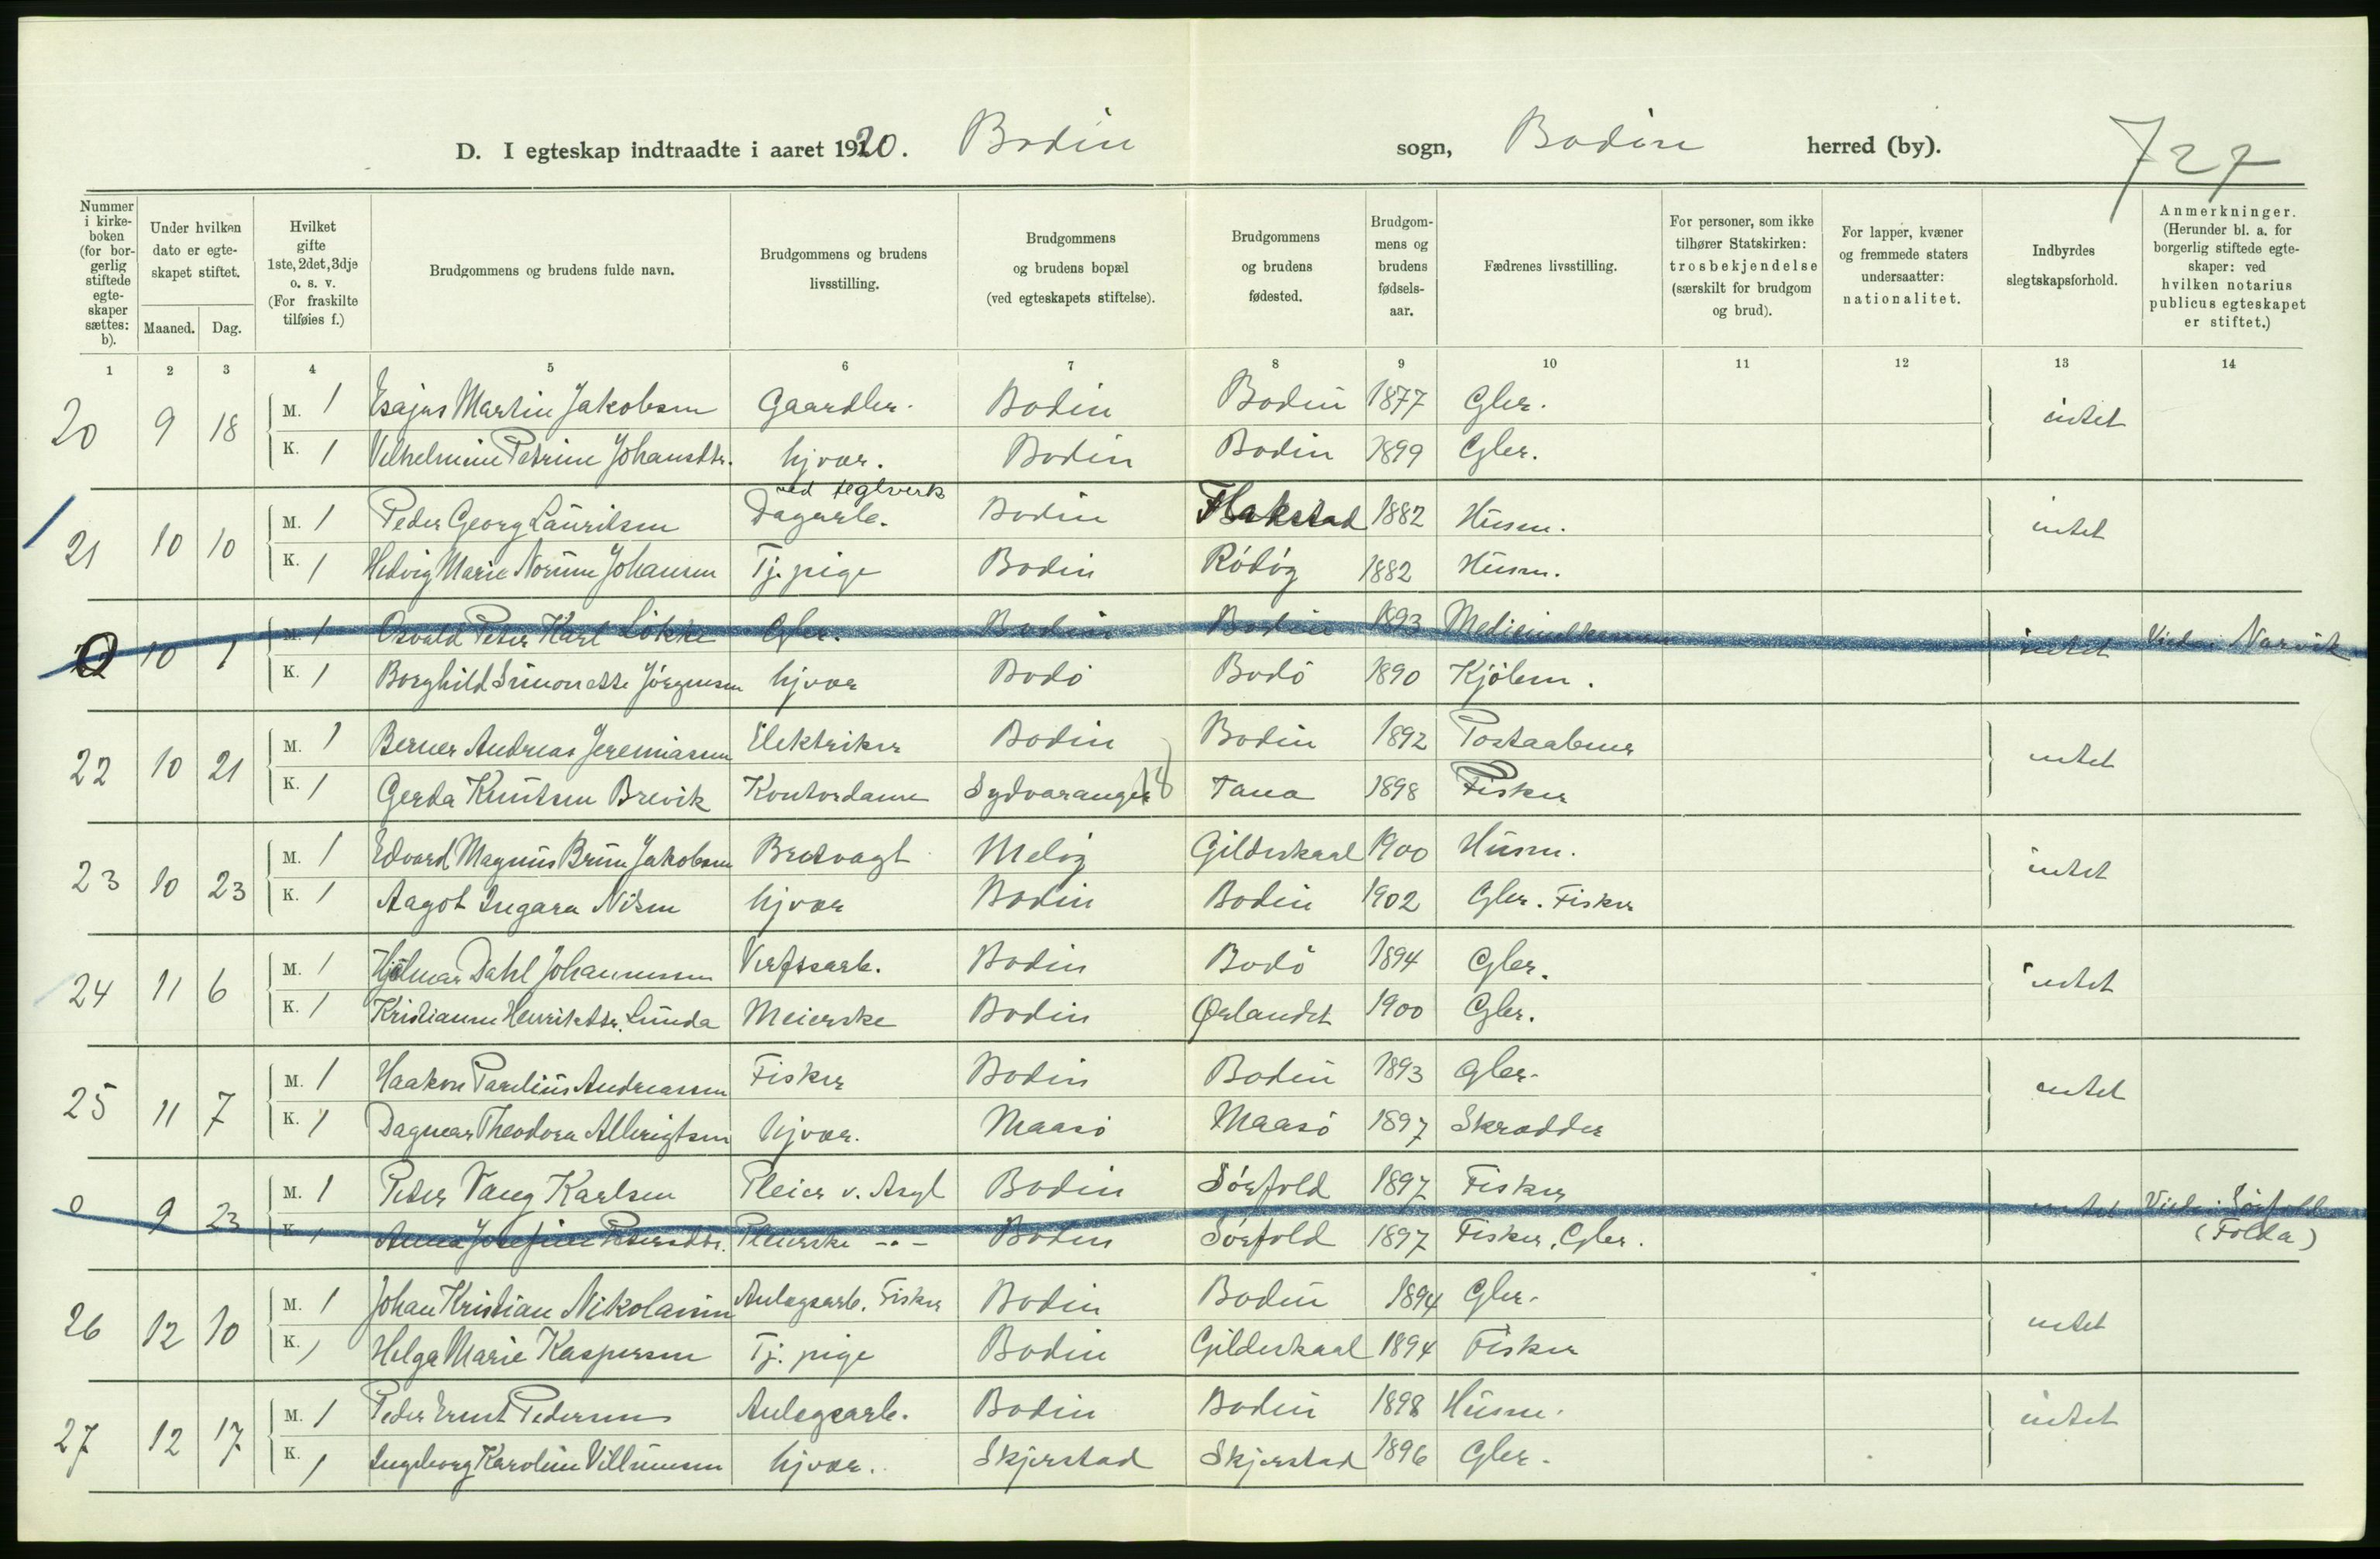 D. I egteskap indtraadte i aaret 1920. Bodin sogn, Bodin herred (by). 727
Nummer i kirkeboken (for borgerlig stiftede egteskaper sættes: b).
Under hvilken dato er egteskapet stiftet.
Maaned. Dag.
Hvilket gifte 1ste, 2det, 3dje o. s. v. (For fraskilte tilføies f.)
Brudgommens og brudens fulde navn.
Brudgommens og brudens livsstilling.
Brudgommens og brudens bopæl (ved egteskapets stiftelse).
Brudgommens og brudens fødested.
Brudgommens og brudens fødselsaar.
Fædrenes livsstilling.
For personer, som ikke tilhører Statskirken: trosbekjendelse (særskilt for brudgom og brud).
For lapper, kvæner og fremmede staters undersaatter: nationalitet.
Indbyrdes slegtskapsforhold.
Anmerkninger. (Herunder bl. a. for borgerlig stiftede egteskaper: ved hvilken notarius publicus egteskapet er stiftet.)
1 2 3 4 5 6 7 8 9 10 11 12 13 14
20 9 18 M. 1 Esajas Martin Jakobsen Gaardbr. Bodin Bodin 1877 Gbr. intet
K. 1 Vilhelmine Petrine Johansdtr. hjvær. Bodin Bodin 1899 Gbr.
ved teglverk
21 10 10 M. 1 Peder Georg Lauritsen Dagarb. Bodin Flakstad 1882 Husm. intet
K. 1 Hedvig Marie Norum Johansen Tj. pige Bodin Rödöy 1882 Husm.
0 10 1 M. 1 Osvald Peter Karl Lökke Gbr. Bodin Bodin 1893 intet Viede i Narvik
K. 1 Borghild Simonette Jörgensen hjvær Bodö Bodö 1890 Kjöbm.
22 10 21 M. 1 Berner Andreas Jeremiassen Elektriker Bodin Bodin 1892 Postaabner intet
K. 1 Gerda Knutsen Brevik Kontordame Sydvaranger 18 Tana 1898 Fisker
23 10 23 M. 1 Edvard Magnus Brun Jakobsen Meløy Gildeskaal 1900 Husm. intet
K. 1 Aagot Ingara Nilsen hjvær Bodin Bodin 1902 Gbr. Fisker
24 11 6 M. 1 Hjalmar Dahl Johannessen Verftsarb. Bodin Bodö 1894 Gbr. intet
K. 1 Kristianne Henriksdtr. Lunda Meierske Bodin Ørlandet 1900 Gbr.
25 11 7 M. 1 Haakon Parelius Andreassen Fisker Bodin Bodin 1893 Gbr. intet
K. 1 Dagmar Theodora Albrigtsen hjvær. Maasö Maasö 1897 Skrædder
0 9 23 M. 1 Peter Vang Karlsen Pleier v. Asyl Bodin Sörfold 1897 Fisker intet Viede i Sörfold
K. 1 Anna Josefine Pedersdtr. Pleierske -"- Bodin Sörfold 1897 Fisker, Gbr. (Folda)
26 12 10 M. 1 Johan Kristian Nikolaisen Anlegsarb. Fisker Bodin Bodin 1894 Gbr. intet
K. 1 Helga Marie Kaspersen Tj. pige Bodin Gildeskaal 1894 Fisker
27 12 17 M. 1 Peder Ernst Pedersen Anlegsarb. Bodin Bodin 1898 Husm. intet
K. 1 Ingeborg Karoline Villumsen hjvær. Skjerstad Skjerstad 1896 Gbr.